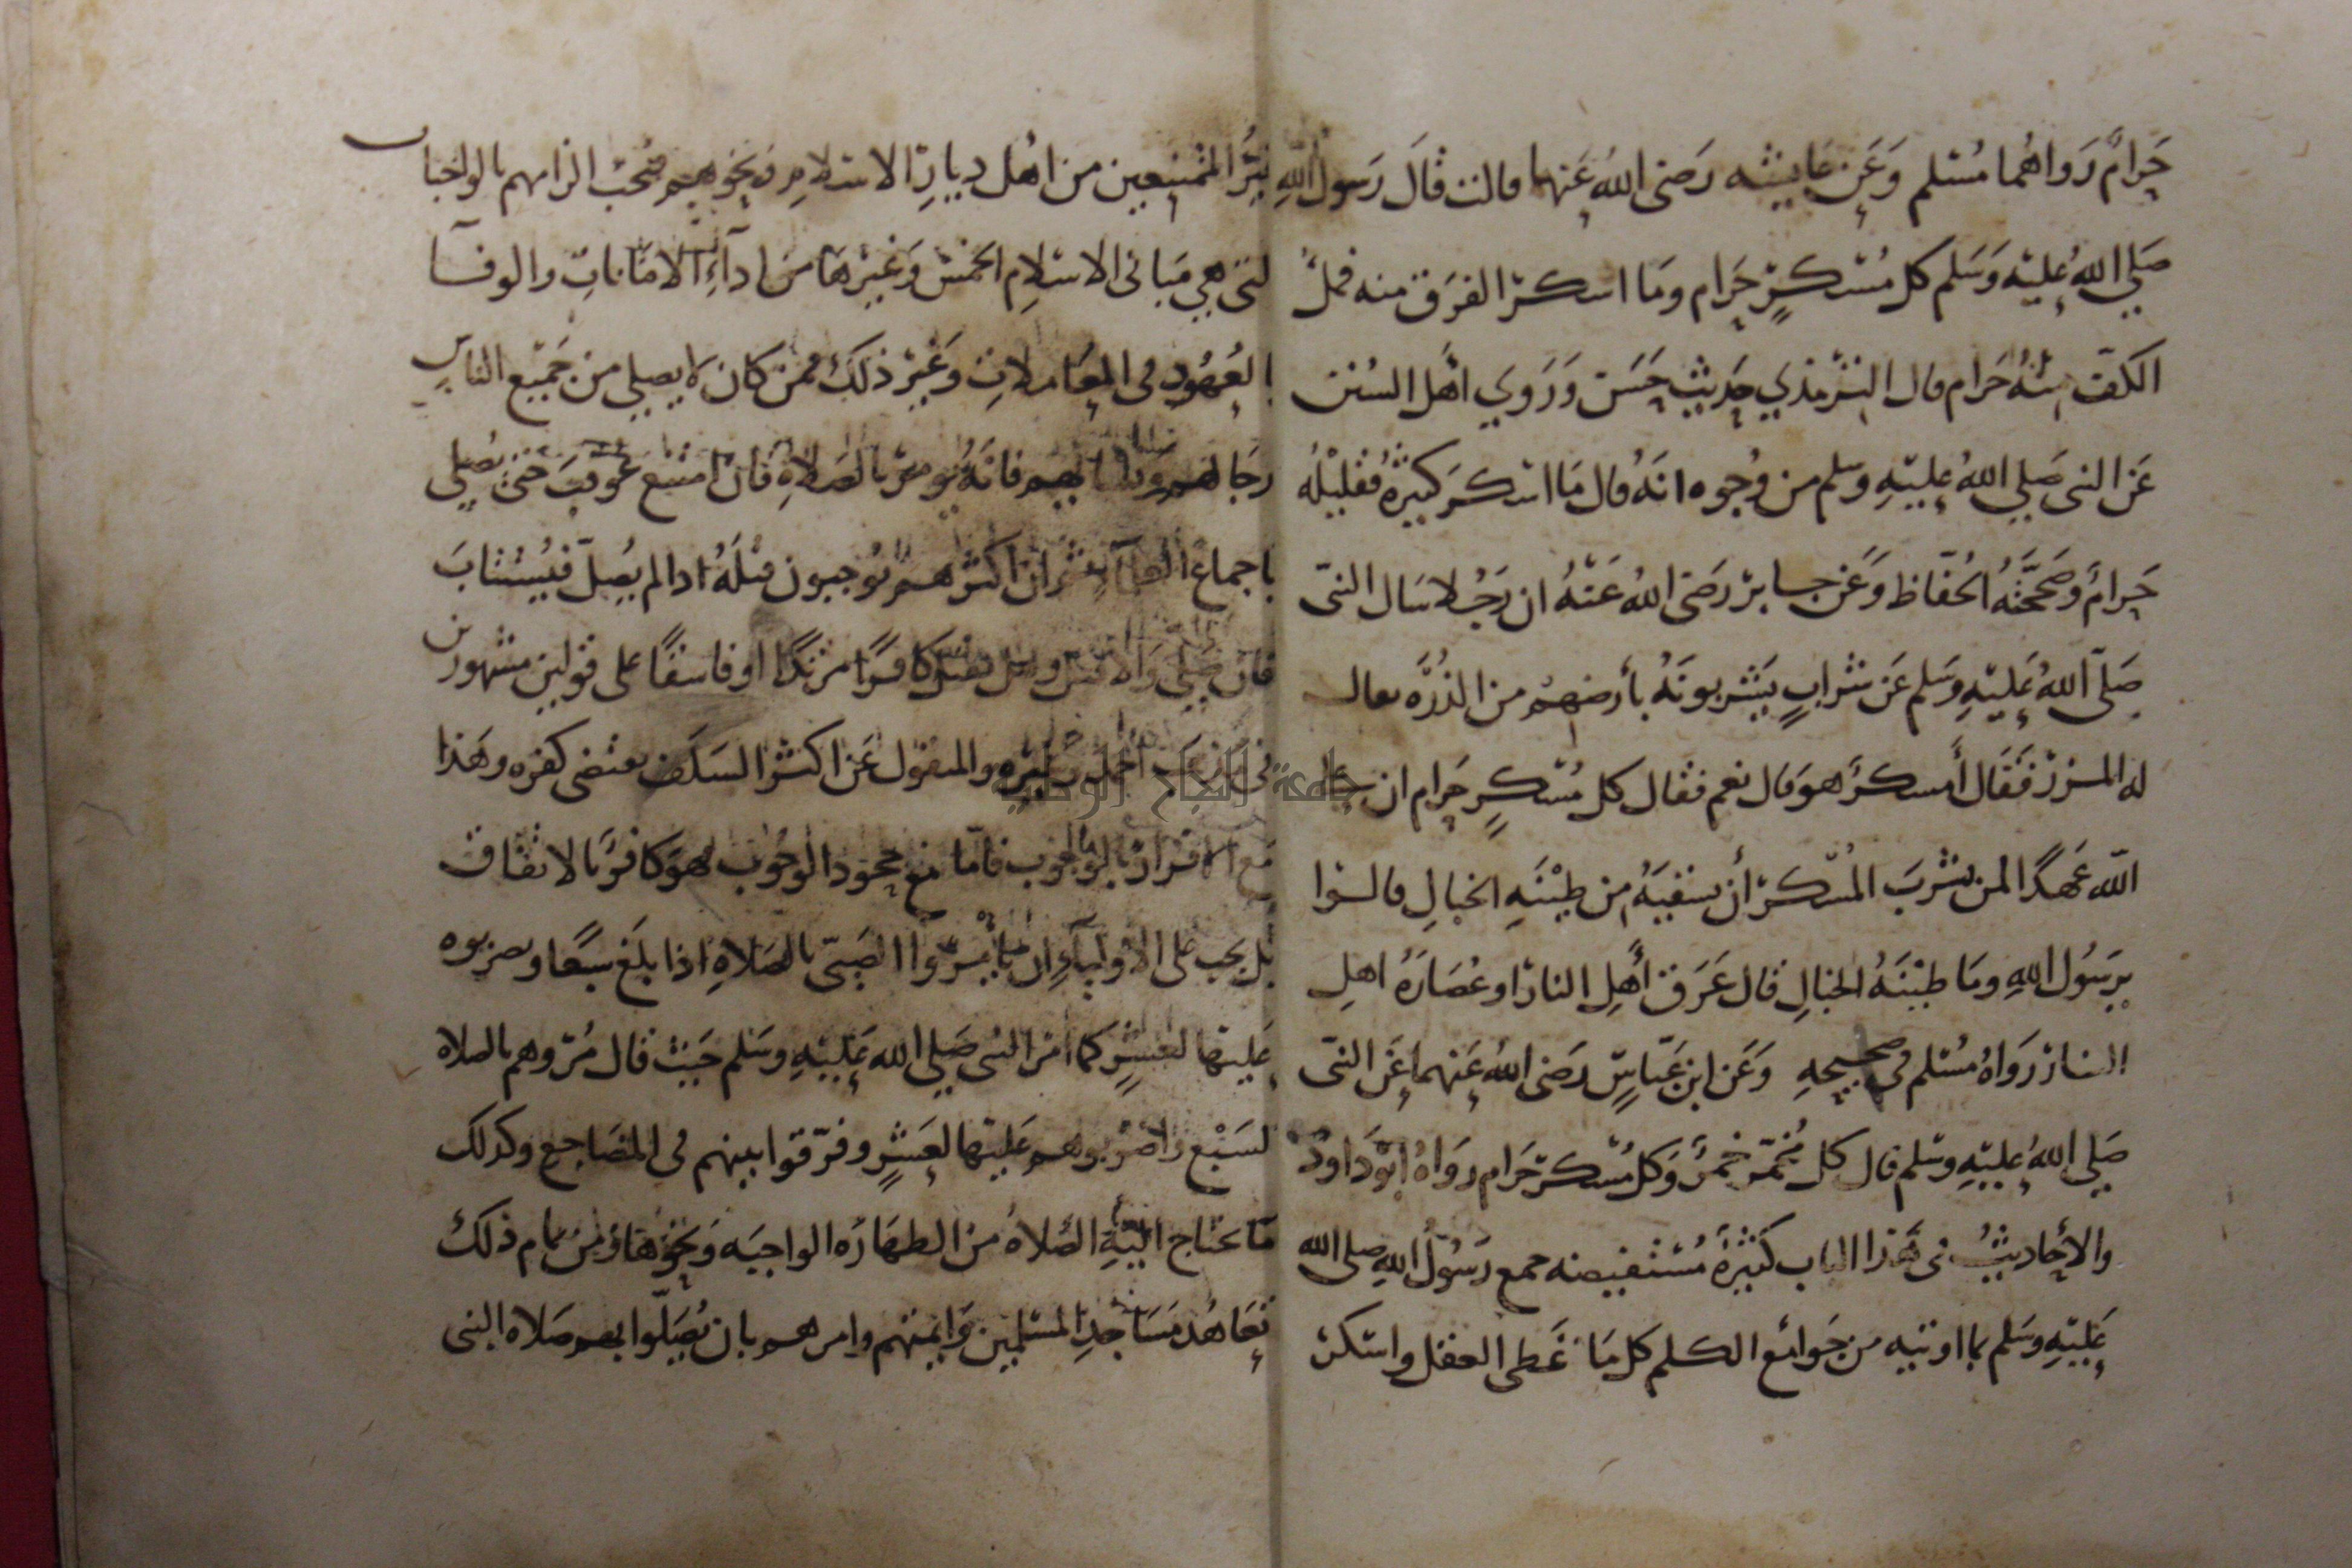 حرام رواهما مسلم وعن عايشه رضى الله عنها قالت قال رسول الله
صلي الله عليه وسلم كل مسكر حرام وما اسكر الفرق منه فمل
الكف منه حرام قال الترمذي حديث حسن وروي اهل السنن
عن النبى صلي الله عليه وسلم من وجوه انه قال ما اسكر كثيره فقليله
حرام وصححه الحفاظ وعن جابر رضى الله عنه ان رجلا سال النبى
صلى الله عليه وسلم عن شراب يشربونه بأرضهم من الذره يقال
له المزر فقال أمسكر هو قال نعم فقال كل مسكر حرام ان على
الله عهدا لمن يشرب المسكر أن يسقيه من طينه الخبال قالوا
يرسول الله وما طينه الخبال قال عرق أهل النار او عصاره اهل
النار رواه مسلم في صحيحه وعن ابن عباس رضى الله عنهما عن النبى
صلى الله عليه وسلم قال كل مخمر خمر وكل مسكر حرام رواه ابو داود
والأحاديث فى هذا الباب كثيره مستفيضه جمع رسول الله صلى الله
عليه وسلم بما اوتيه من جوامع الكلم كل ما غطى العقل واسكر
الممتنعين من اهل ديار الاسلام ونحوهم فيجب الزامهم بالواجبات
لتى هي مبانى الاسلام الخمس وغيرها من ادآء الامانات والوفآ
بالعهود فى المعاملات وغير ذلك فمن كان لا يصلي من جميع الناس
رجالهم ونسايهم فانه يومر بالصلاة فان امتنع عوقب حتى يصلي
باجماع ثم ان اكثرهم يوجبون قتله اذا لم يصل فيستتاب
فان صلى والا قتل وهل يقتل كافرا مرتدا او فاسقا على قولين مشهورين
فى مذهب احمد وغيره والمنقول عن اكثر السلف يقتضى كفره وهذا
مع الاقرار بالوجوب فاما مع جحود الوجوب فهو كافر بالاتفاق
بل يجب على الاوليآء ان يامروا الصبى بالصلاة اذا بلغ سبعا ويضربوه
عليها لعشر كما امر النبى صلي الله عليه وسلم حيث قال مروهم بالصلاه
لسبع واضربوهم عليها لعشر وفرقوا بينهم فى المضاجع وكذلك
ما تحتاج اليه الصلاة من الطهاره الواجبه ونحوها ومن تمام ذلك
تعاهد مساجد المسلمين وايمتهم وامرهم بان يصلوا بهم صلاه النبى
جامعة النجاح الوطنية